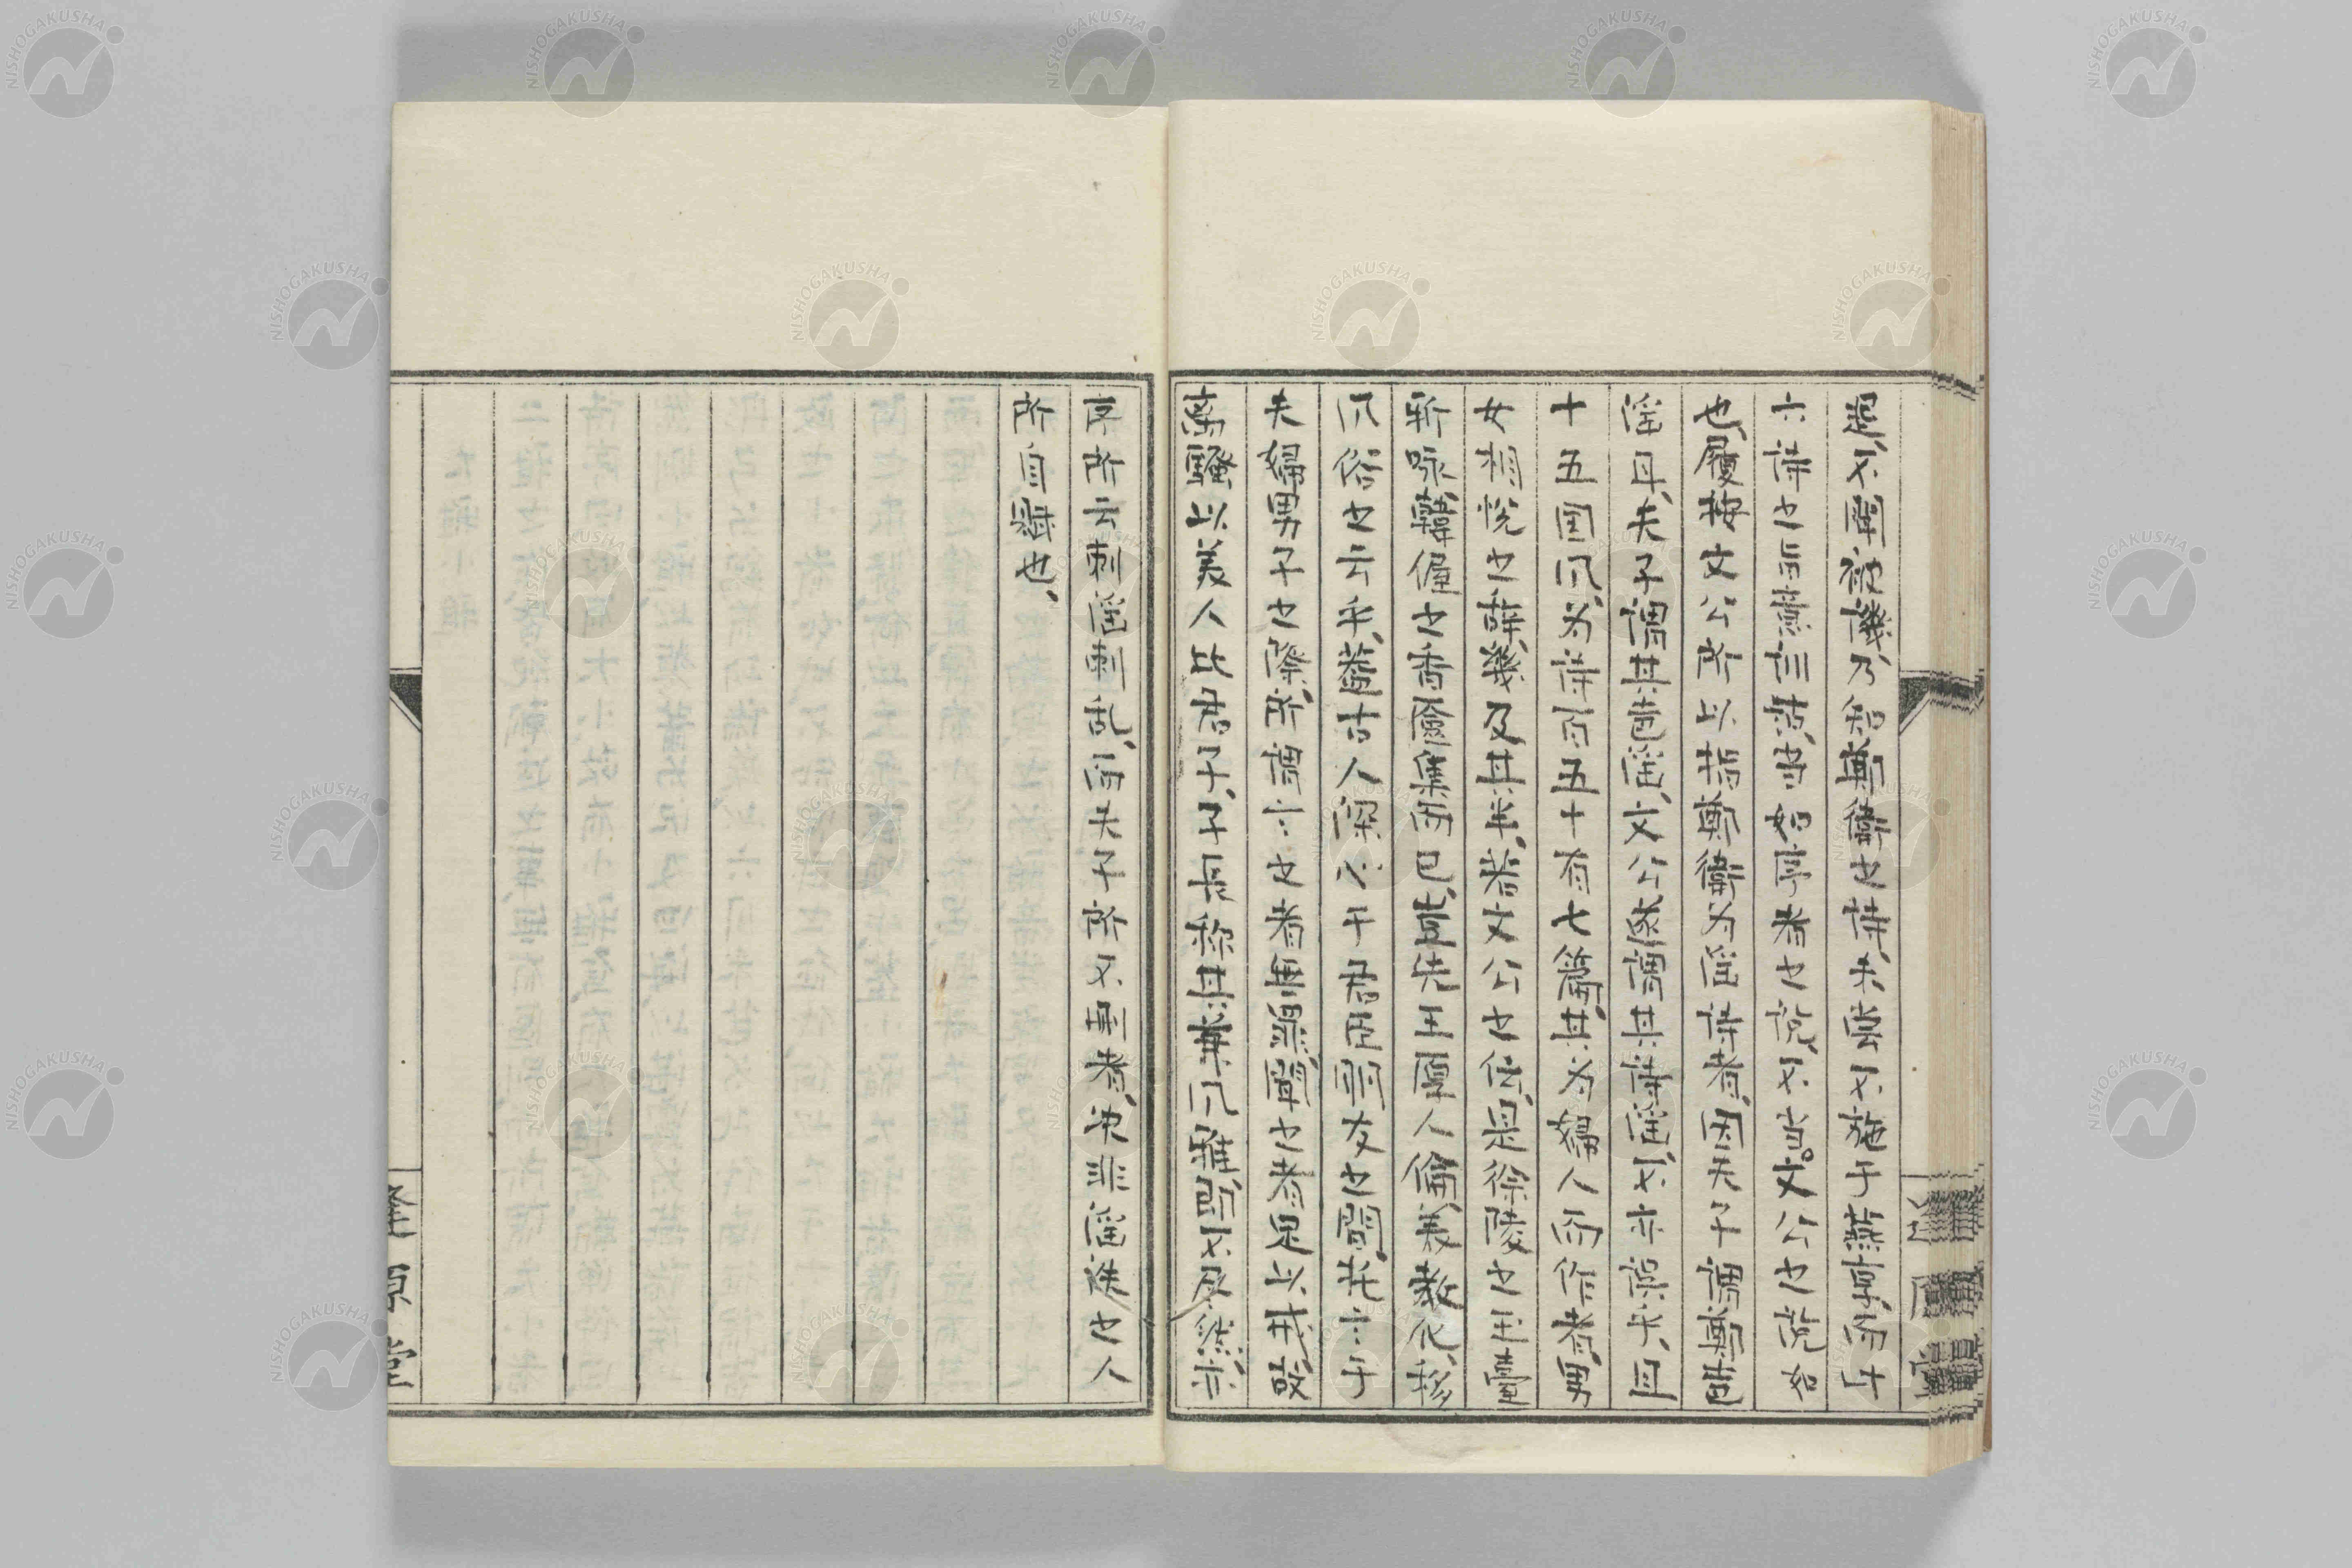 是、不闡彼譏、乃知鄭衛之詩、未嘗不施于燕享、而廿
六詩之旨意訓詁、当如序者之説、不当。文公之説如
也、履按文公所以指鄭衛为淫詩者、因夫子謂鄭声
淫耳、夫子謂其声淫、文公遂謂其詩淫、不亦誤乎、且
十五国风、为詩百五十有七篇、其为婦人而作者、男
女相悦之辞、幾及其半、若文公之伝、是徐陵之玉臺
新咏、韓偓之香奩集而已、豈先王厚人倫、美教化、移
风俗之云乎、蓋古人深心于君臣朋友之間、托言于
夫婦男子之際、所謂言之者無罪、聞之者足以戒、故
离騒以美人比君子、子長称其兼风雅、韵不及然、亦
序所云刺淫刺乱、而夫子所不刪者、決非淫泆之人
所自辯也、
原堂
NISHOGAKUSHA